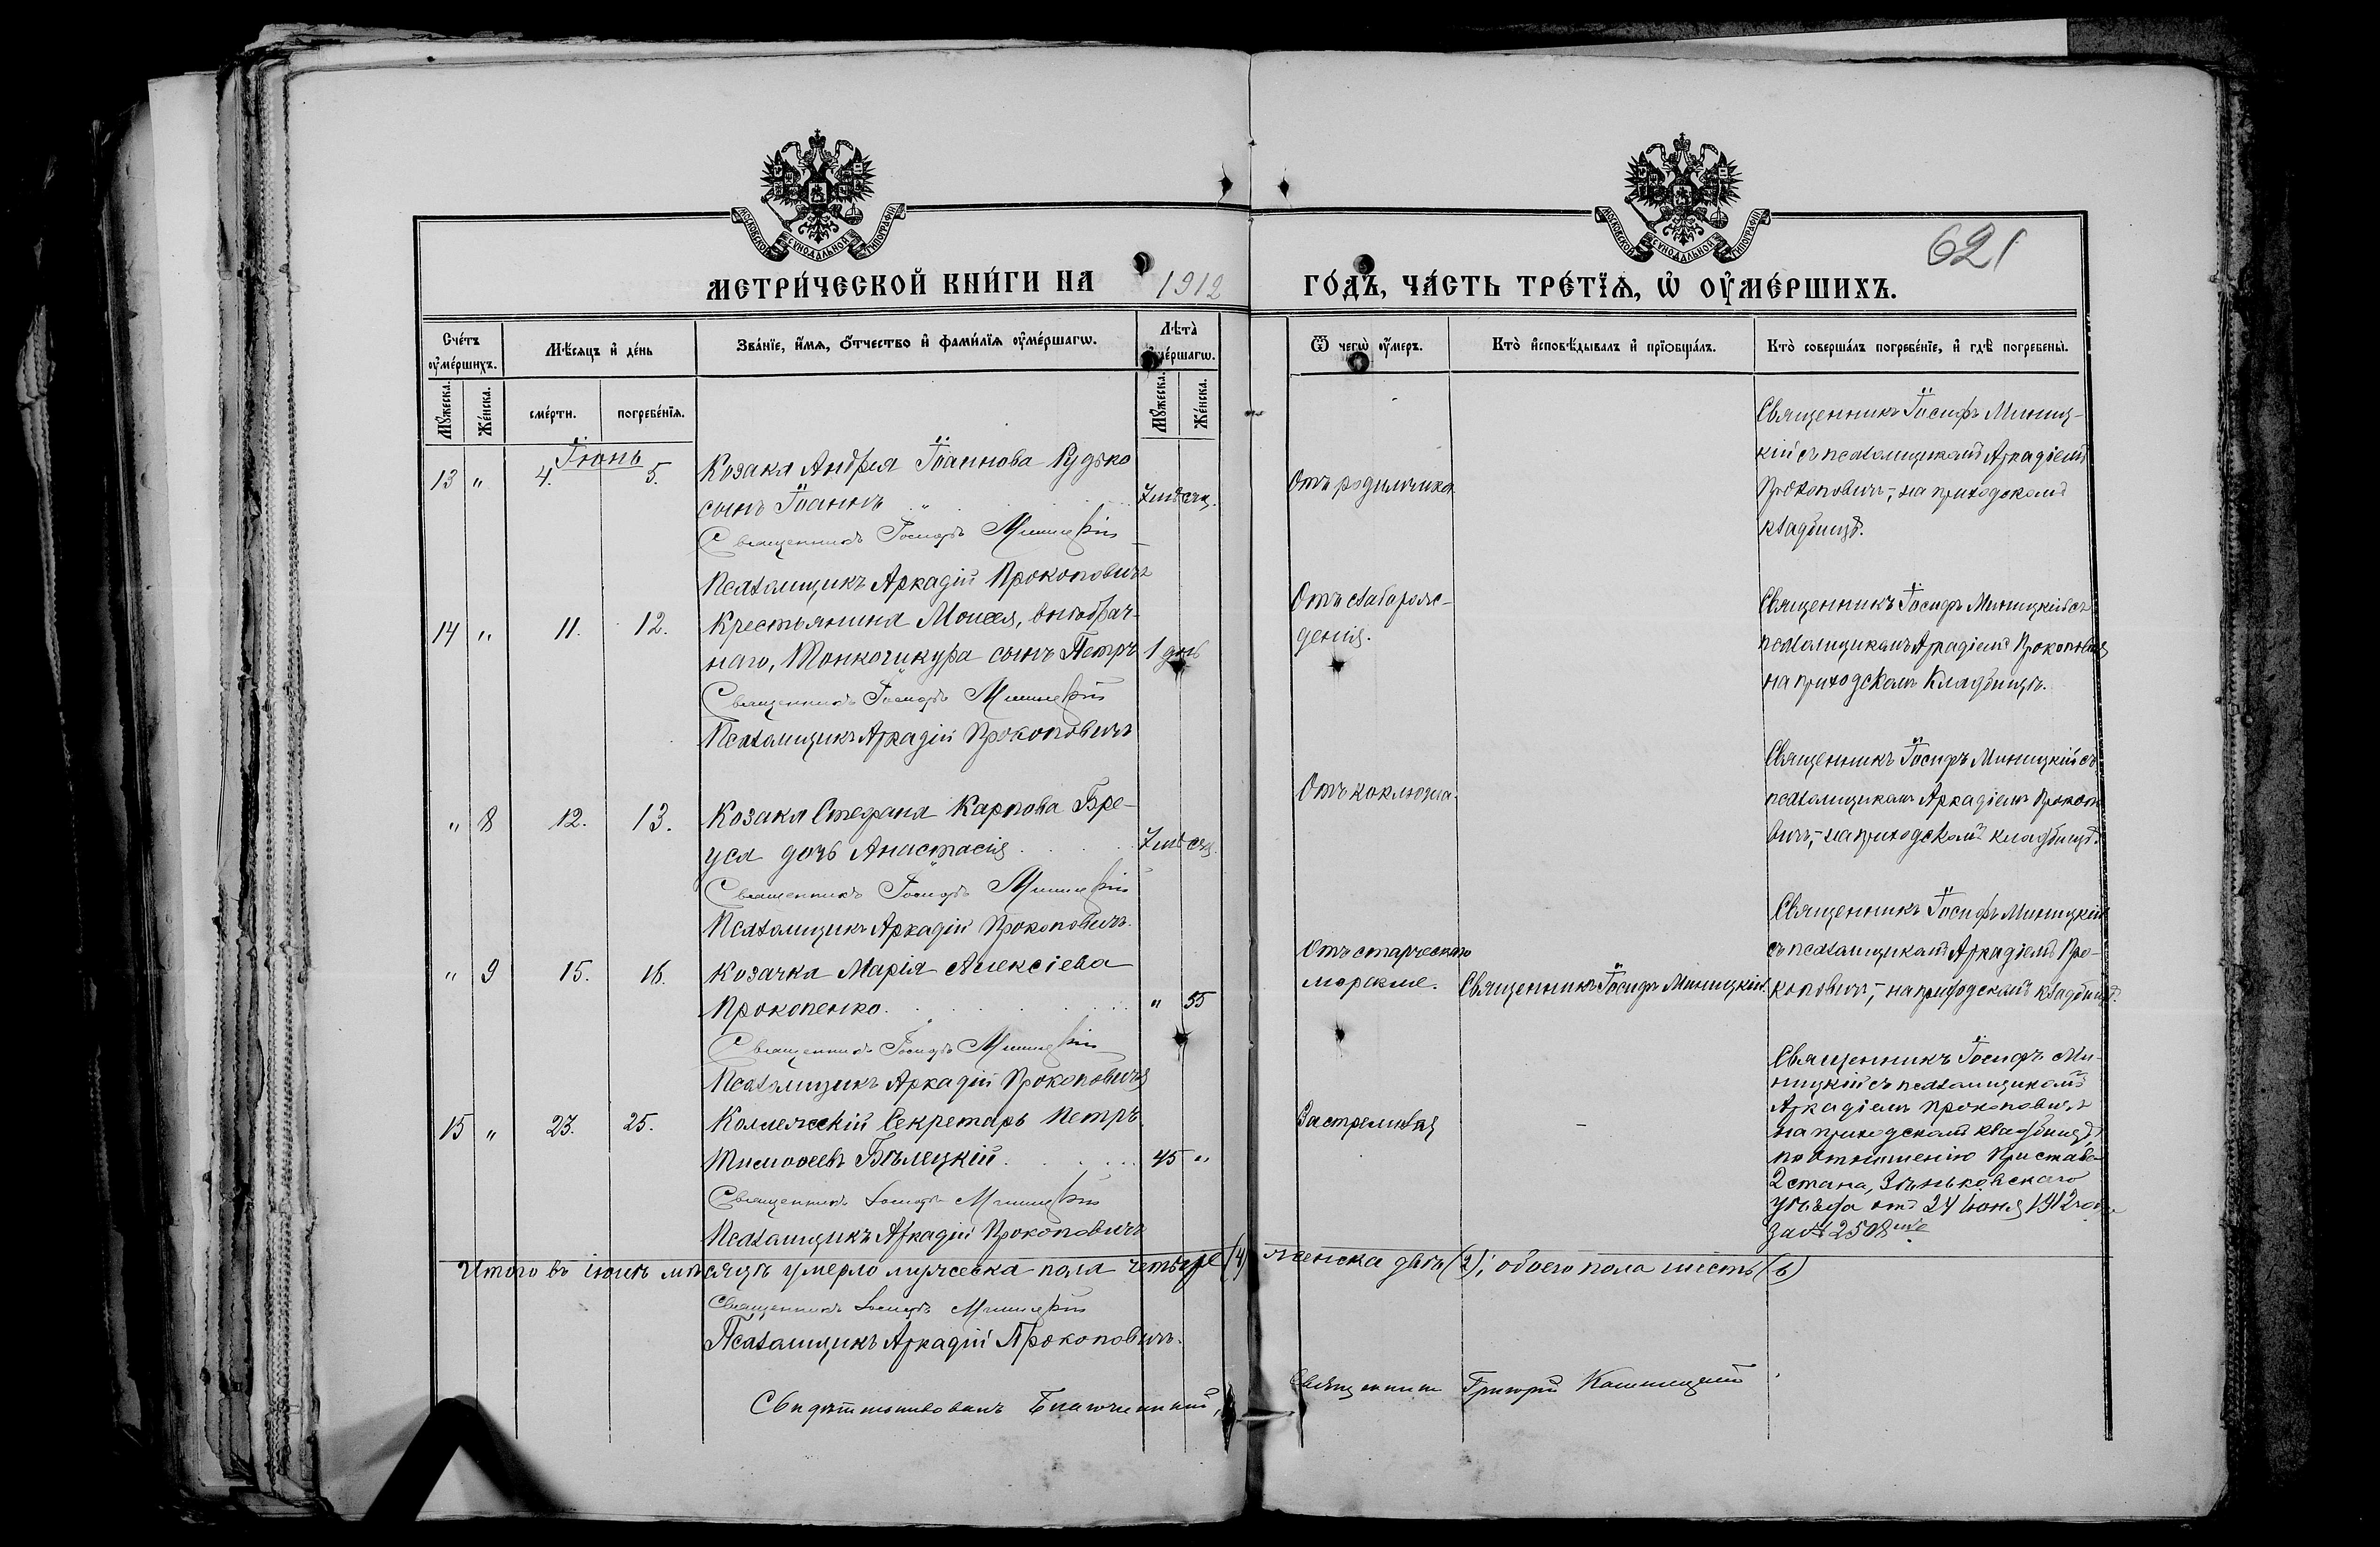 МОСКОВСКОЙ СѴНОДАЛЬНОЙ ТИПОГРАФІИ
МОСКОВСКОЙ СѴНОДАЛЬНОЙ ТИПОГРАФІИ
621
МЕТРИ́ЧЕСКОЙ КНИ́ГИ НА 1912 ГО́ДЪ, ЧА́СТЬ ТРЕ́ТІѦ, Ѡ҆ ОУ҆МЕ́РШИХЪ.
Сче́тъ оу҆ме́ршихъ.
Мѣ́сяцъ и҆ де́нь
Зва́нїе, и҆́мѧ, ѻ҆́тчество и҆ фами́лїѧ оу҆ме́ршагѡ.
Лѣта̀ оу҆ме́ршагѡ.
Ѿ чегѡ̀ оу҆́меръ.
Кто̀ и҆сповѣ́дывалъ и҆ прїѡбща́лъ.
Кто̀ соверша́лъ погребе́нїе, и҆ гдѣ̀ погребены̀.
Мꙋ́жеска.
Же́нска.
сме́рти.
погребе́нїѧ.
Мꙋ́жеска.
Же́нска.
Іюнь
13 " 4. 5.
Козака Андрея Іоаннова Рудько
сынъ Іоаннъ 7 мѣсяц.
Священникъ Іосифъ Миницкій
Псаломщикъ Аркадій Прокоповичъ
Отъ родимчика
Священникъ Іосифъ Миниц-
кій съ псаломщикомъ Аркадіемъ
Прокоповичъ,- на приходскомъ
кладбищѣ.
14 " 11. 12.
Крестьянина Моисея, внѣбрач-
наго, Тонкошкура сынъ Петръ 1 день
Священникъ Іосифъ Миницкій
Псаломщикъ Аркадій Прокоповичъ
Отъ слаборож-
денія.
Священникъ Іосифъ Миницкій съ
псаломщикомъ Аркадіемъ Прокоповичъ
на приходскомъ кладбищѣ.
" 8 12. 13.
Козака Стефана Карпова Бре-
уса дочь Анастасія 7 мѣсяц.
Священникъ Іосифъ Миницкій
Псаломщикъ Аркадій Прокоповичъ.
Отъ коклюша.
Священникъ Іосифъ Миницкій съ
псаломщикомъ Аркадіемъ Прокопо
вичъ,- на приходскомъ кладбищѣ.
" 9 15. 16.
Козачка Марія Алексіева
Прокопенко. " 55
Священникъ Іосифъ Миницкій
Псаломщикъ Аркадій Прокоповичъ
Отъ старческаго
Священникъ Іосифъ Миницкій.
Священникъ Іосифъ Миницкій
съ псаломщикомъ Аркадіемъ Про-
коповичъ,- на приходскомъ кладбищѣ.
15 " 23. 25.
Коллежскій Секретарь Петръ
Тимоѳеевъ Бѣлецкій. 45 "
Священникъ Іосифъ Миницкій
Псаломщикъ Аркадій Прокоповичъ
Застрелился
-
Священникъ Іосифъ Ми-
ницкій съ псаломщикомъ
Аркадіемъ Прокоповичъ
на приходскомъ кладбищѣ,
по отношенію Пристава
2 стана, Зѣньковскаго
уѣзда отъ 24 іюня 1912 года
за № 2508
Итого въ іюнѣ мѣсяцѣ умерло мужеска пола четыре (4) женска двѣ (2); обоего пола шесть (6)
Священникъ Іосифъ Миницкій
Псаломщикъ Аркадій Прокоповичъ.
Свидѣтельствовалъ Благочинный, Священникъ Григорій